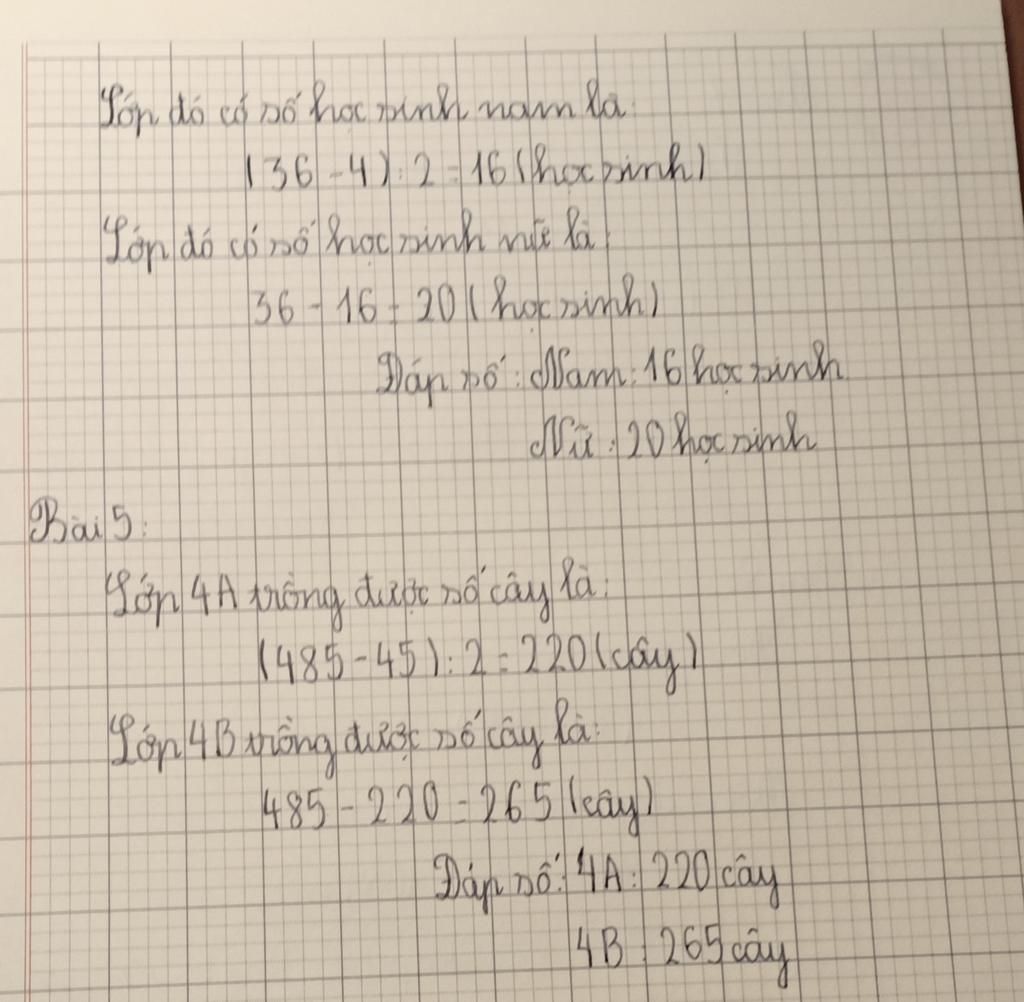 Lớp đó có số học sinh nam là:
(36 - 4) : 2 = 16 (học sinh)
Lớp đó có số học sinh nữ là
36 - 16 = 20 (học sinh)
Đáp số: Nam: 16 học sinh
Nữ: 20 học sinh
Bài 5:
Lớp 4A trồng được số cây là:
(485 - 45) : 2 = 220 (cây)
Lớp 4B trồng được số cây là:
485 - 220 = 265 (cây)
Đáp số: 4A: 220 cây
4B: 265 cây